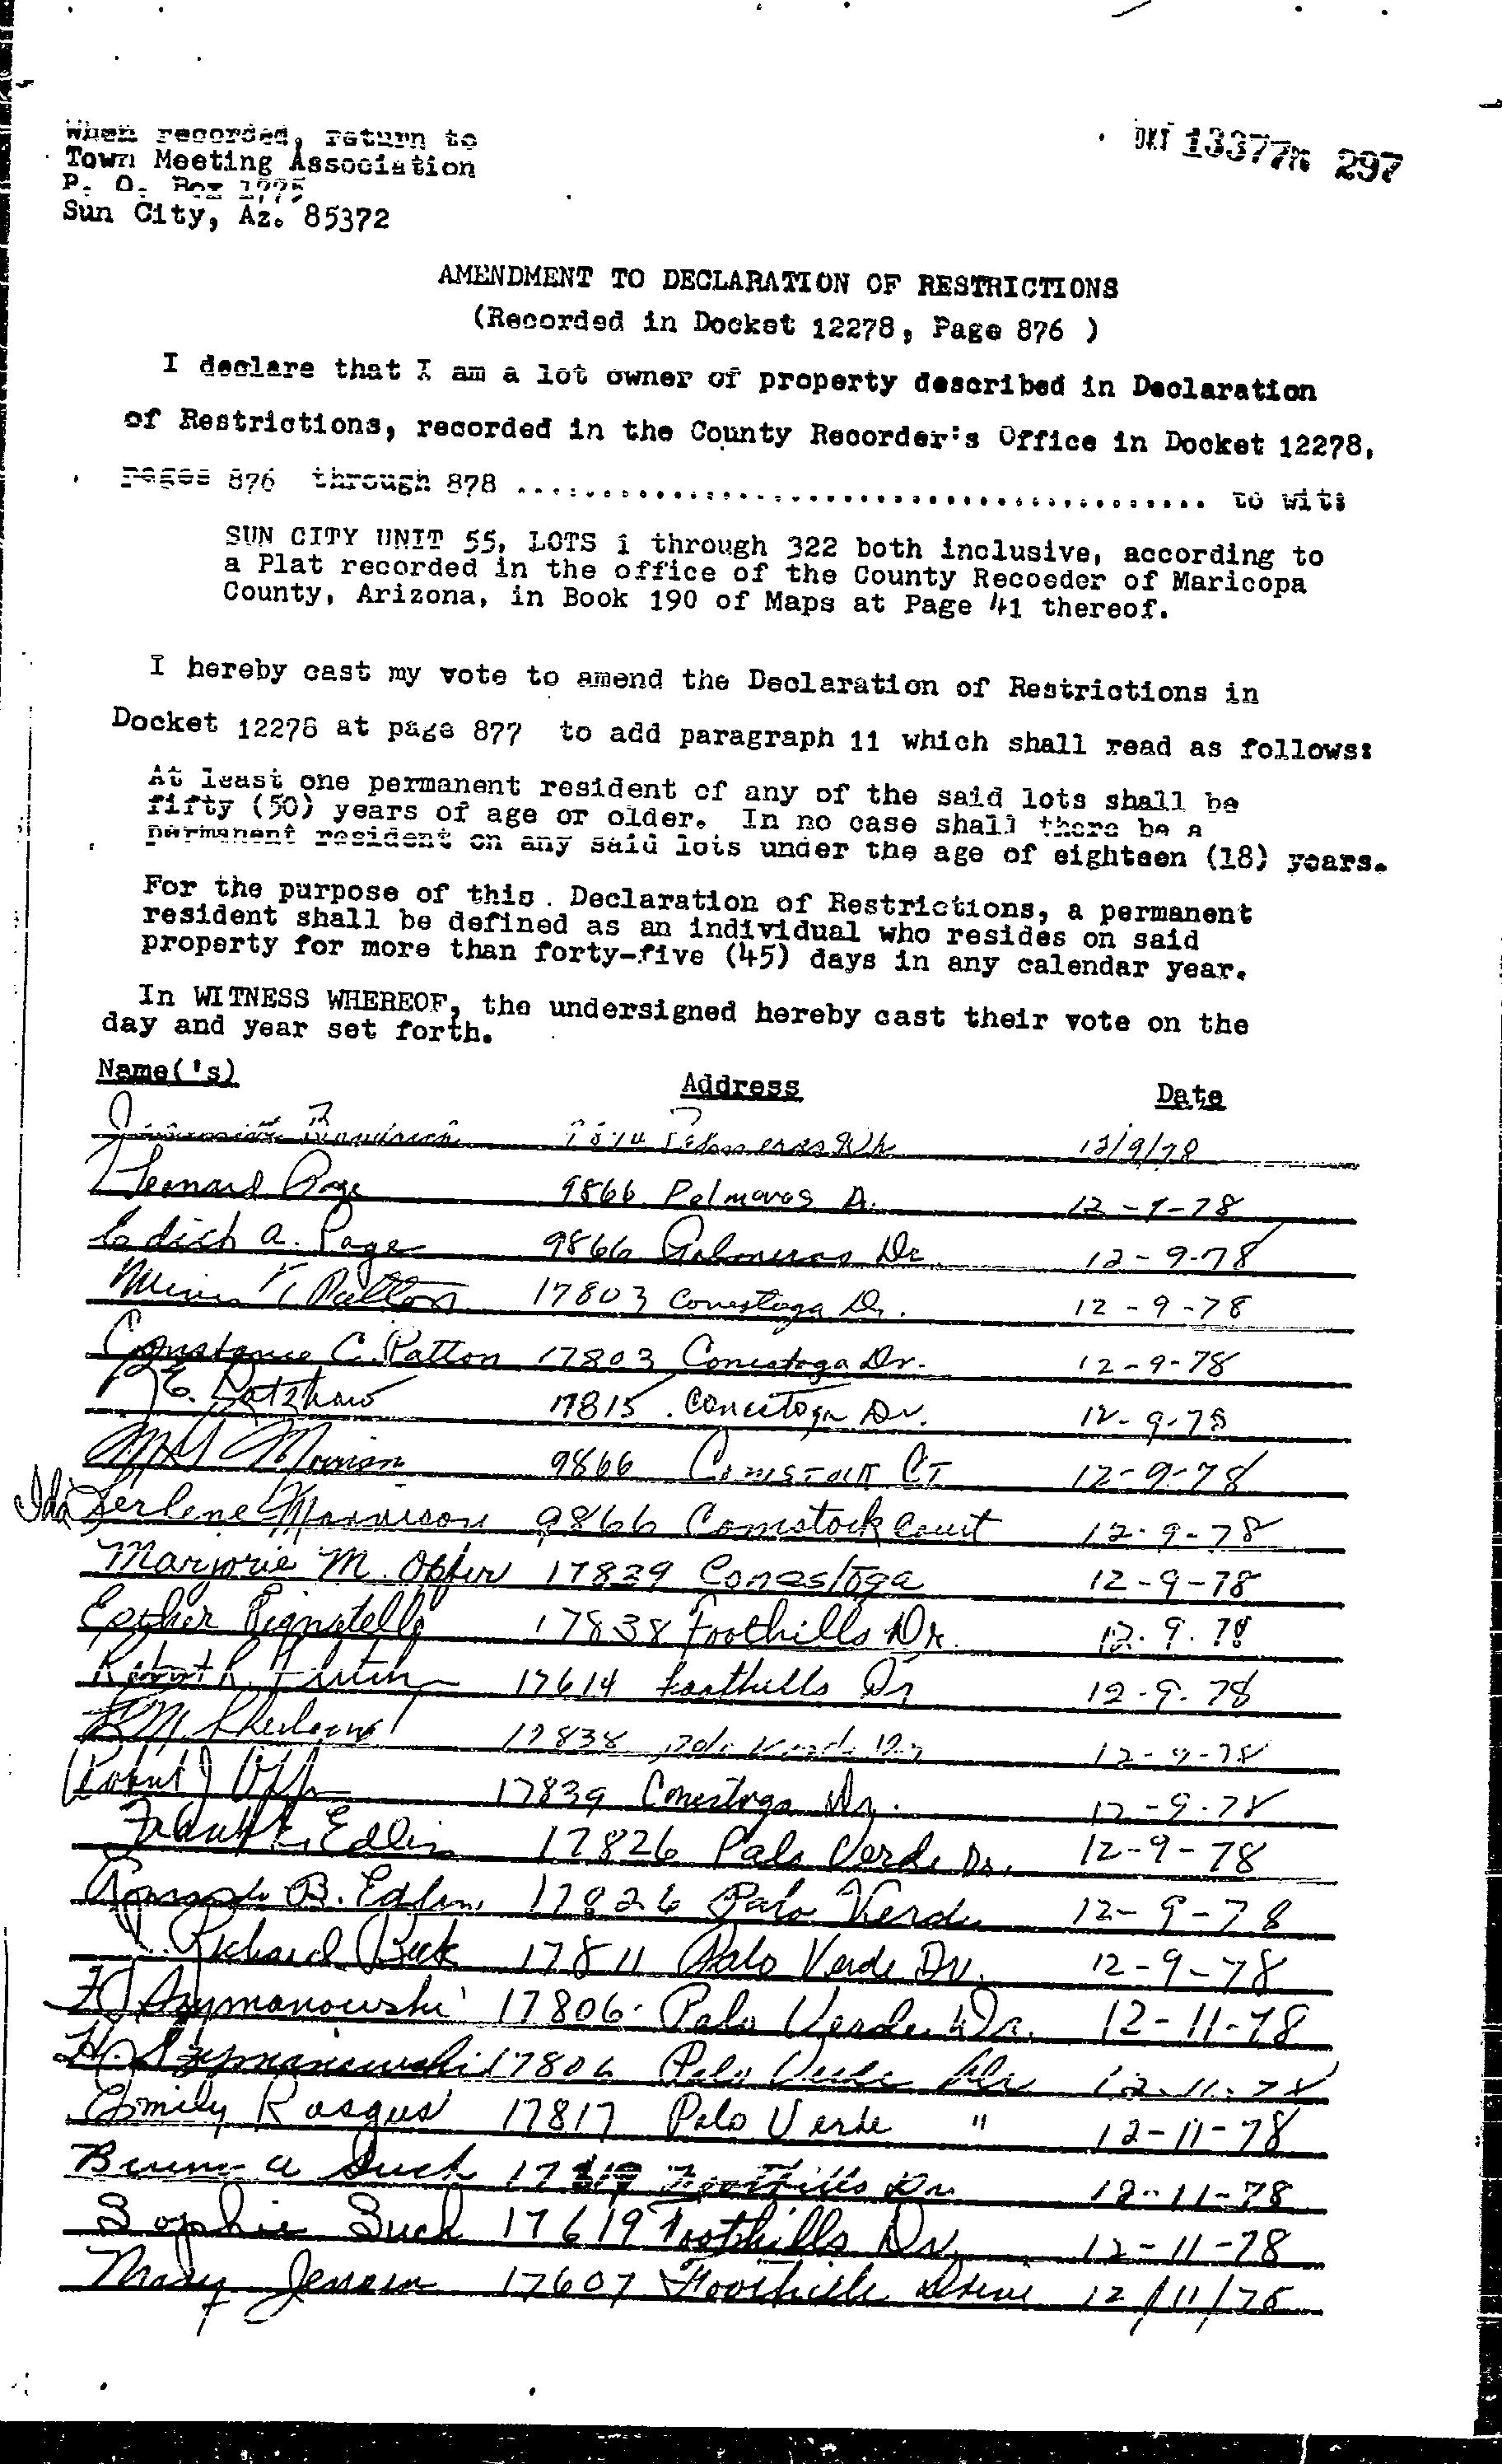 When recorded, return to
Town Meeting Association
P. O. Box
Sun City, Az. 85372
DKT 13377 297
AMENDMENT TO DECLARATION OF RESTRICTIONS
(Recorded in Docket 12278, Page 876 )
I declare that I am a lot owner of property described in Declaration
of Restrictions, recorded in the County Recorder's Office in Docket 12278,
pages 876 through 878 ........................................ to wit:
SUN CITY UNIT 55, LOTS 1 through 322 both inclusive, according to
a Plat recorded in the office of the County Recoeder of Maricopa
County, Arizona, in Book 190 of Maps at Page 41 thereof.
I hereby cast my vote to amend the Declaration of Restrictions in
Docket 12278 at page 877 to add paragraph 11 which shall read as follows:
At least one permanent resident of any of the said lots shall be
fifty (50) years of age or older. In no case shall there be a
permanent resident on any said lots under the age of eighteen (18) years.
For the purpose of this . Declaration of Restrictions, a permanent
resident shall be defined as an individual who resides on said
property for more than forty-five (45) days in any calendar year.
In WITNESS WHEREOF, the undersigned hereby cast their vote on the
day and year set forth.
Name('s) Address Date
12/9/78
Leonard Page 9866 Palmeras D. 12-9-78
Edith A. Page 9866 Palmeras Dr 12-9-78
Patton 17803 Conestoga Dr. 12-9-78
Constance C. Patton 17803 Conestoga Dr. 12-9-78
17815 Conestoga Dr. 12-9-78
9866 Comstock CT 12-9-78
Ida Ferlene Morrison 9866 Comstock Court 12-9-78
Marjorie M. Opfer 17839 Conestoga 12-9-78
Esther Pignatelli 17838 Foothills Dr. 12.9.78
Robert R. 17614 Foothills Dr 12-9-78
17838 Palo Verde Dr 12-9-78
Robert J 17839 Conestoga Dr. 12-9-78
Frank E. Edlin 17826 Palo Verde Dr. 12-9-78
B. Edlin 17826 Palo Verde 12-9-78
Richard Beck 17811 Palo Verde Dr. 12-9-78
Szymanowski 17806 Palo Verde Dr. 12-11-78
H. Szymanowski 17806 Palo Verde Dr 12-11-78
Emily Rasgus 17817 Palo Verde " 12-11-78
Such Foothills Dr. 12-11-78
Sophie Such 17619 Foothills Dr. 12-11-78
Mary Jensen 17607 Foothills Drive 12/11/78